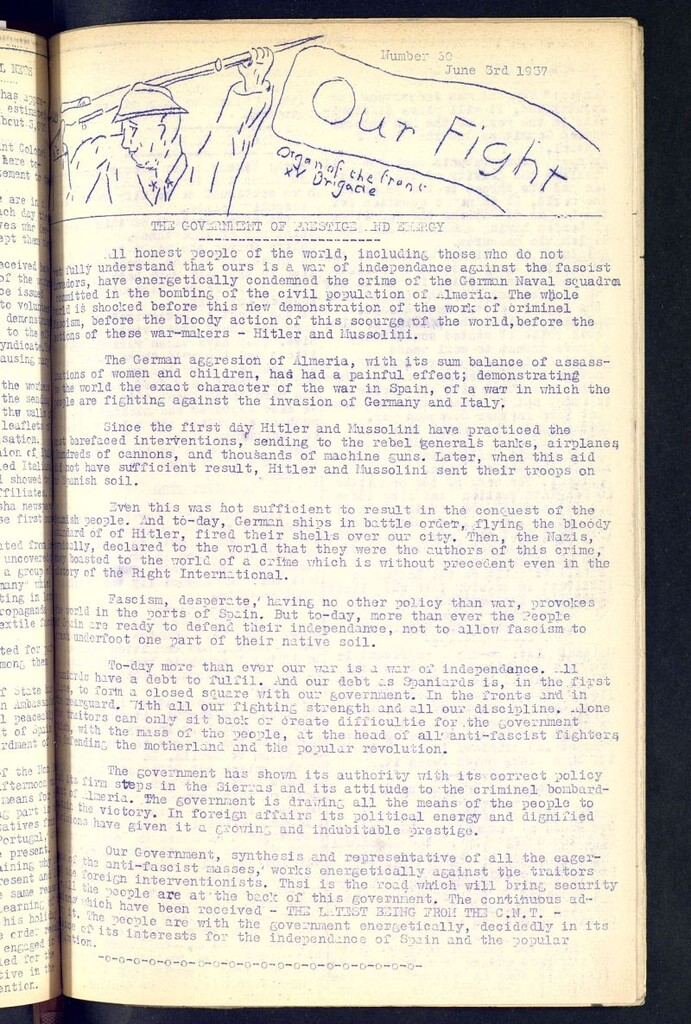 L NEWS
has
estima
bout 3,
nt Colo
here to
tement to
are in
ach day
ves who
ept them
aceived
of the
ce issue
to volun
demonst
to the
yndicate
ausing
the work
the send
the wall
leaflets
sation.
ion of
ed Itali
showed
ffiliates.
sha newsp
se first
ated from
uncovere
a group
many
ting in
ropaganda
extile
ted for
mong then
f State
n Ambass
l peacef
t of Spai
rdment of
of the
fternoon
means for
g part in
tatives
Portugal,
present.
aining why
resent and
same reas
learning
his holi
order
engaged
ied for the
tive in the
ention.
Number 30
June 3rd 1937
Our Fight
Organ of the
XV Brigade
THE GOVERNMENT OF PRESTIGE AND ENERGY
All honest people of the world, including those who do not
fully understand that ours is a war of independence against the fascist
invaders, have energetically condemned the crime of the German Naval squadron
committed in the bombing of the civil population of Almeria. The whole
world is shocked before this new demonstration of the work of criminel
fascism, before the bloody action of this scourge of the world,before the
actions of these war-makers - Hitler and Mussolini.
The German aggresion of Almeria, with its sum balance of assass-
inations of women and children, has had a painful effect; demonstrating
to the world the exact character of the war in Spain, of a war in which the
people are fighting against the invasion of Germany and Italy.
Since the first day Hitler and Mussolini have practiced the
most barefaced interventions, sending to the rebel generals tanks, airplanes
hundreds of cannons, and thousands of machine guns. Later, when this aid
did not have sufficient result, Hitler and Mussolini sent their troops on
Spanish soil.
Even this was hot sufficient to result in the conquest of the
Spanish people. And to-day, German ships in battle order, flying the bloody
standard of of Hitler, fired their shells over our city. Then, the Nazis,
declared to the world that they were the authors of this crime,
they boasted to the world of a crime which is without precedent even in the
history of the Right International.
Fascism, desperate, having no other policy than war, provokes
the world in the ports of Spain. But to-day, more than ever the People
of Spain are ready to defend their independance, not to allow fascism to
underfoot one part of their native soil.
To-day more than ever our war is a war of independence. All
Spaniards have a debt to fulfil. And our debt as Spaniards is, in the first
to form a closed square with our government. In the fronts and in
rearguard. With all our fighting strength and all our discipline. Alone
traitors can only sit back or create difficultie for the government
with the mass of the people, at the head of all anti-fascist fighters
defending the motherland and the popular revolution.
The government has shown its authority with its correct policy
its firm steps in the Sierras and its attitude to the criminel bombard-
of Almeria. The government is drawing all the means of the people to
the victory. In foreign affairs its political energy and dignified
have given it a growing and indubitable prestige.
Our Government, synthesis and representative of all the eager-
of the anti-fascist masses, works energetically against the traitors
foreign interventionists. Thsi is the road which will bring security
the people are at the back of this government. The continuous ad-
which have been received - THE LATEST BEING FROM THE C.N.T. -
it. The people are with the government energetically, decidedly in its
of its interests for the independance of Spain and the popular
-o-o-o-o-o-o-o-o-o-o-o-o-o-o-o-o-o-o-o-